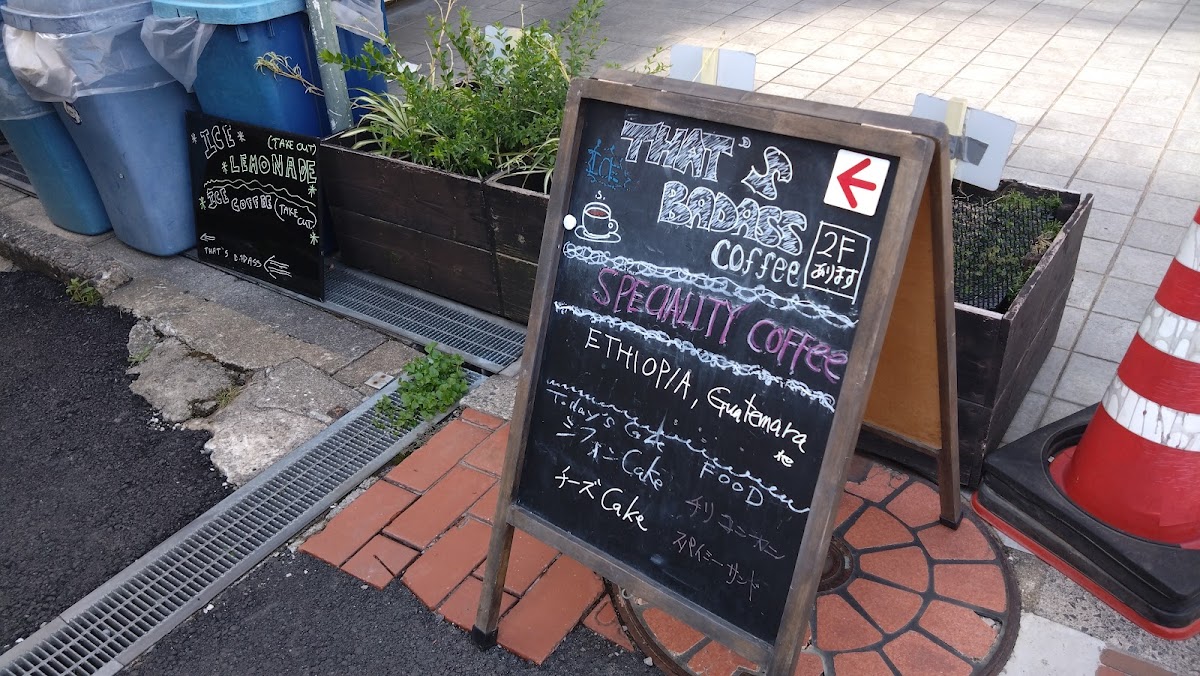 ICE
(TAKE OUT)
LEMONADE
ICE
COFFEE (TAKE OUT)
THAT'S BADASS
THAT'S
ICE
BADASS
coffee
2F
あります
SPECIALITY Coffee
ETHIOPIA, Guatemara
他
Today's Cake
シフォンCake
チーズCake
FOOD
チリコンカン
スパイシーサンド